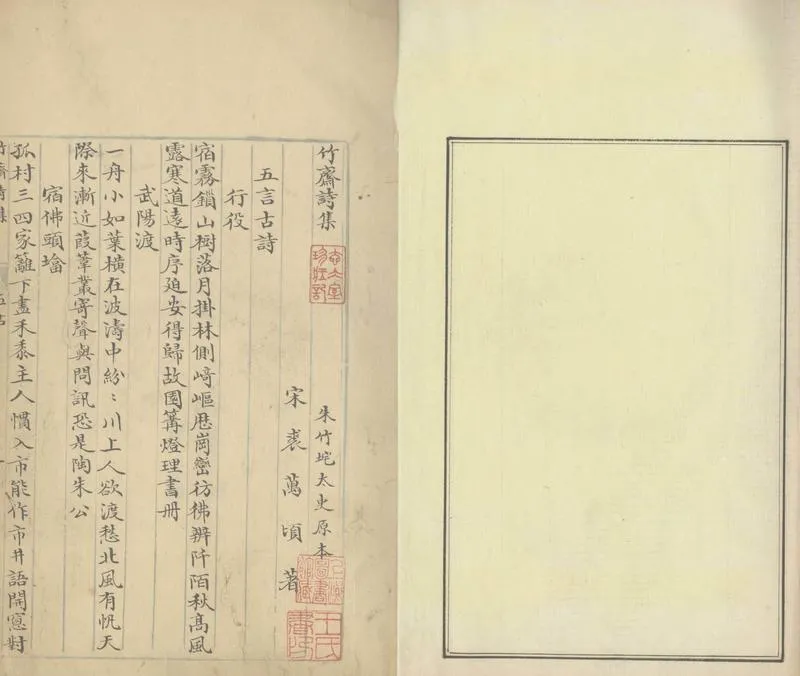 竹齋詩集
朱竹垞太史原本
宋裘萬頃著
五言古詩
行役
宿霧鎖山樹落月掛林側﨑嶇歷崗巒彷彿辨阡陌秋髙風
露寒道遠時序廹安得歸故園篝燈理書册
武陽渡
一舟小如葉橫在波濤中紛〻川上人欲渡愁北風有帆天
際來漸近葭葦叢寄聲與問訊恐是陶朱公
宿佛頭㙮
孤村三四家籬下盡禾黍主人慣入市能作市井語開窻對
竹齋詩集
王氏